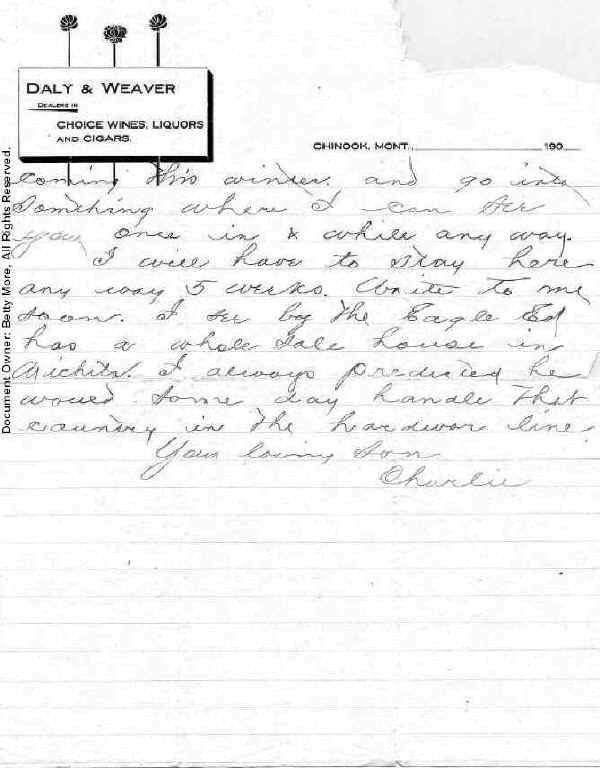 DALY & WEAVER
DEALERS IN
CHOICE WINES, LIQUORS
AND CIGARS.
CHINOOK, MONT., 190
coming this winter. and go into
Something where I can see
you once in a while any way.
I will have to stay here
any way 5 weeks. Write to me
soon. I see by the Eagle Ed
has a whole sale house in
Wichita. I always predicted he
would some day handle that
country in the hardwar line.
Your loving Son
Charlie
Document Owner: Betty More, All Rights Reserved.